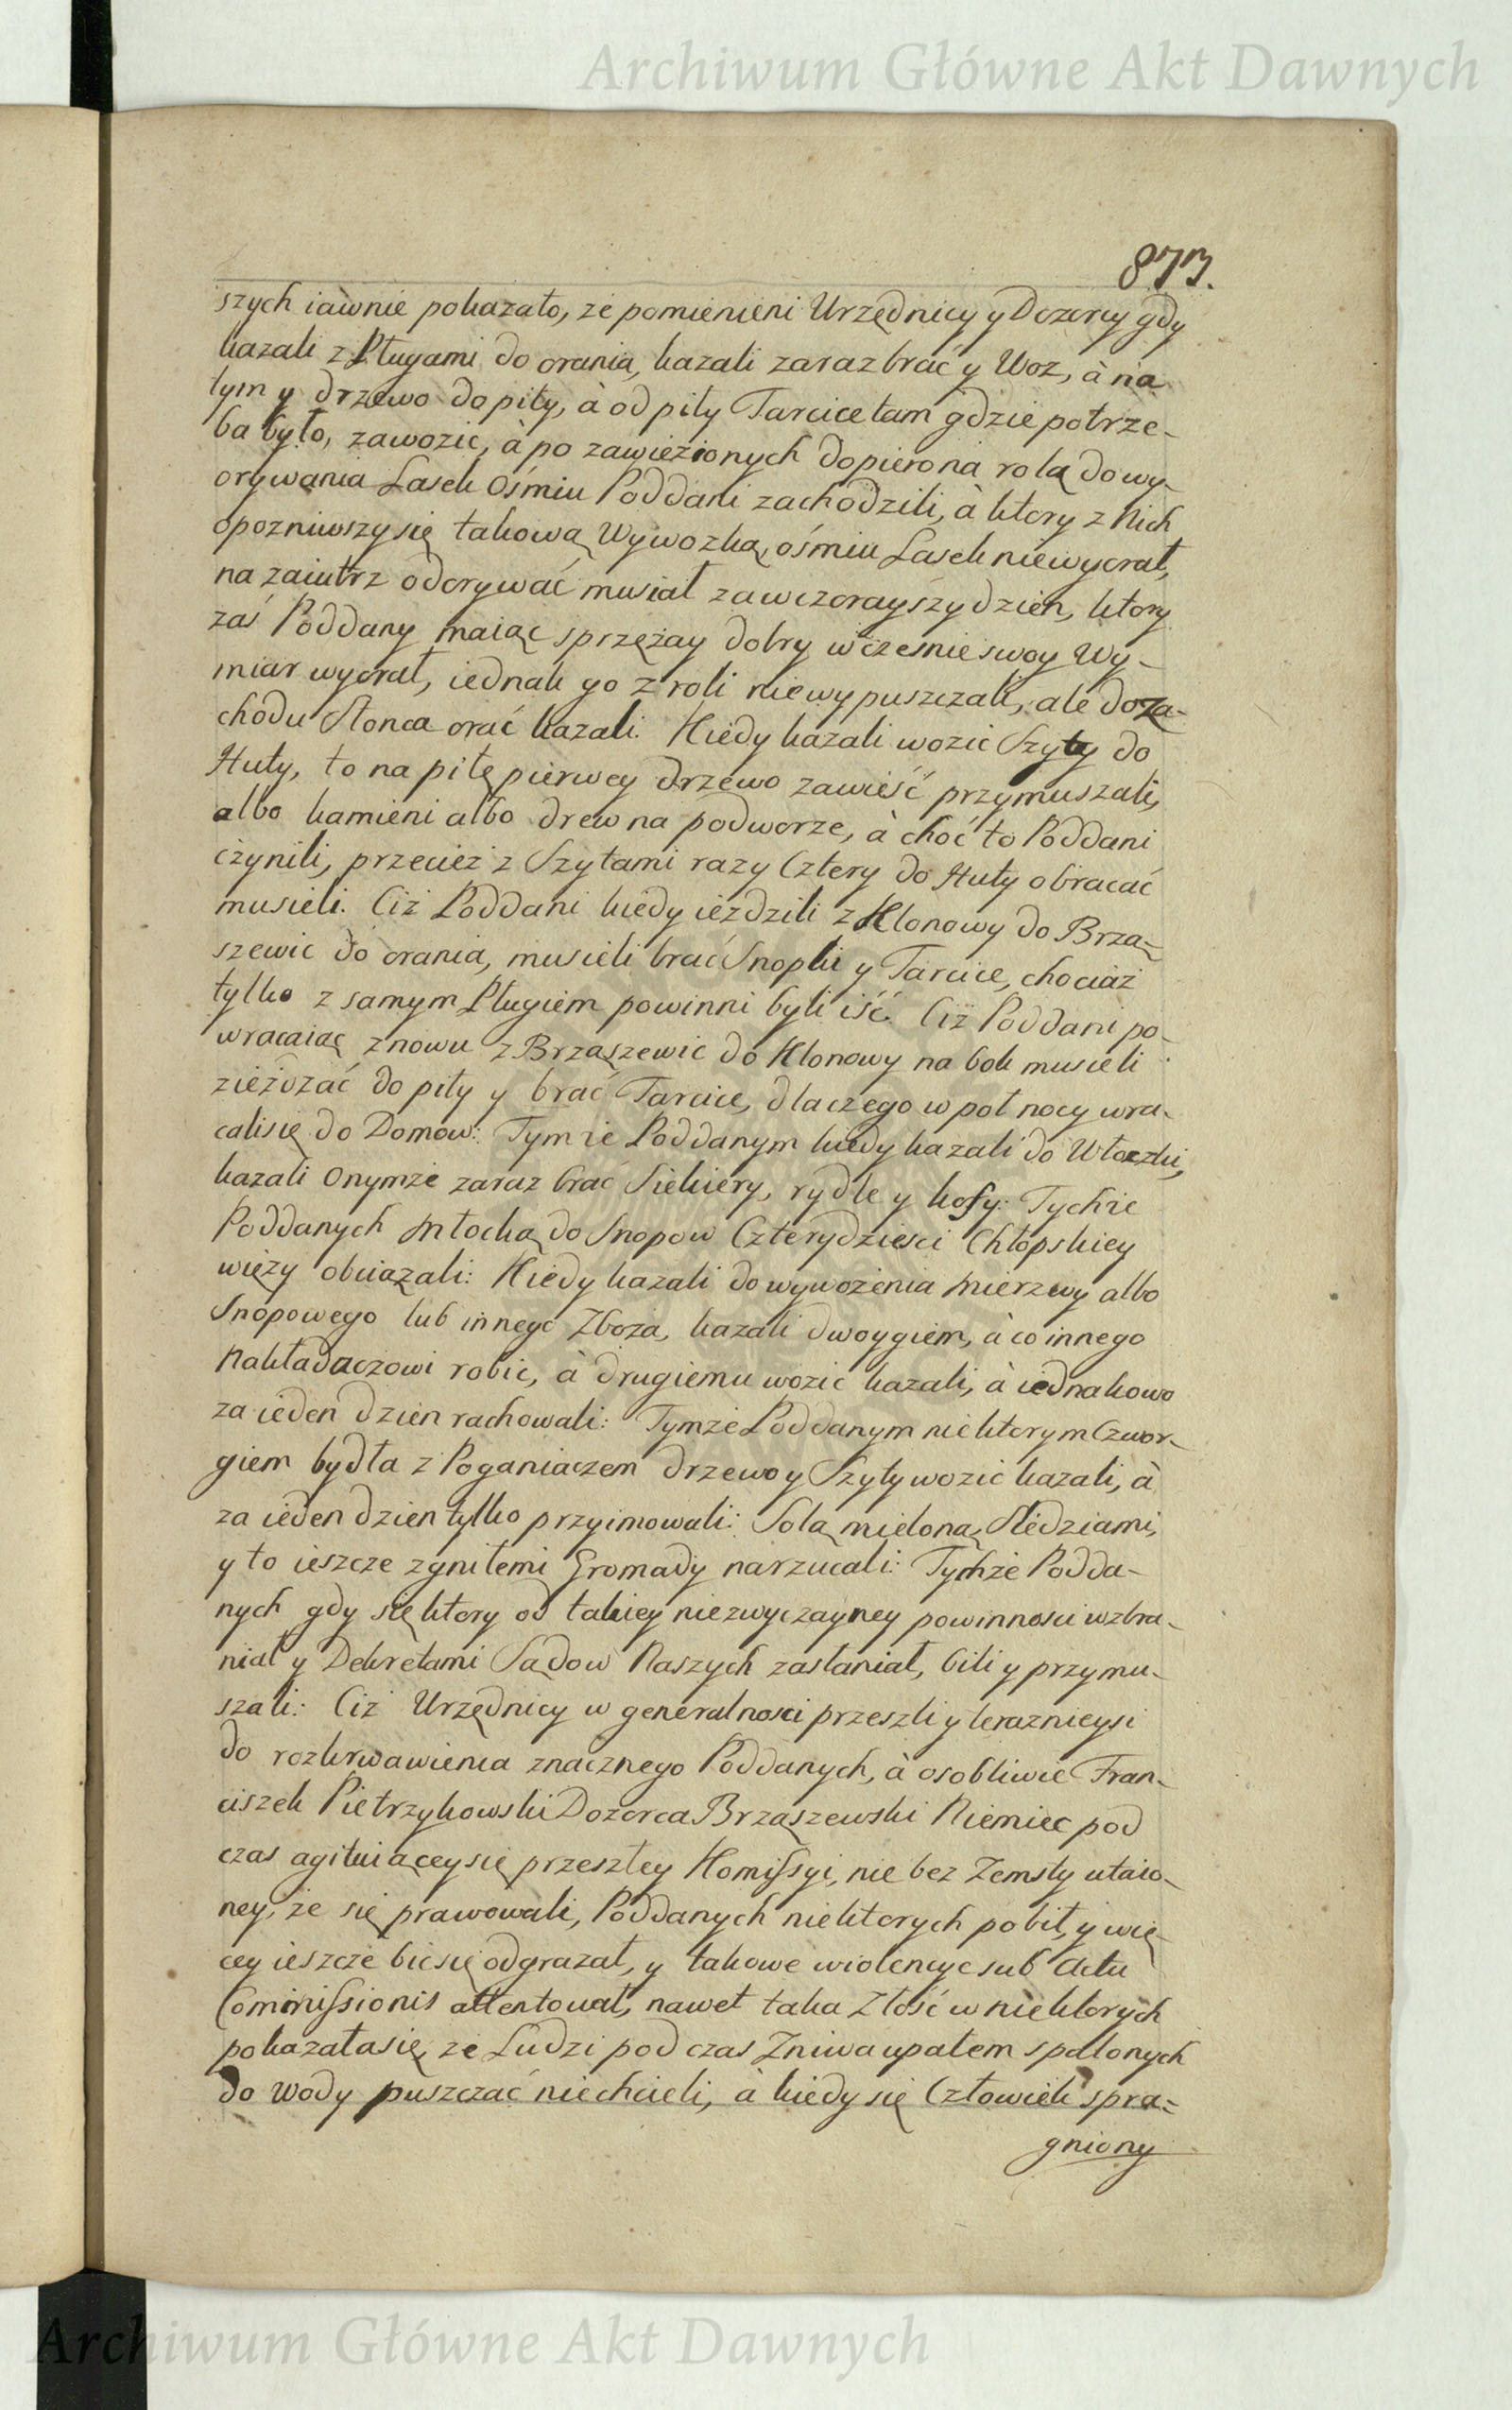 Archiwum Główne Akt Dawnych
873.
szych iawnie pokazało, ze pomienieni Urzędnicy y Dozorcy gdy
kazali z Pługami do orania, kazali zaraz brać y Woz, à na
tym y drzewo do piły, à od piły Tarcice tam gdzie potrze-
ba było, zawozic, à po zawieżionych dopiero na rolą do wy-
orywania Lasek Ośmiu Poddani zachodzili, à ktory z Nich
opozniwszy się takową Wywozką, ośmiu Lasek niewyorał,
na zaiutrz odorywać musiał za wczorayszy dzien, ktory
zaś Poddany maiąc sprzężay dobry wczesnie swoy Wy-
miar wyorał, iednak go z roli niewypuszczali, ale do za-
chodu Słonca orać kazali. Kiedy kazali wozic Szyty do
Huty, to na piłę pierwey drzewo zawieść przymuszali,
albo kamieni albo drew na podworze, à choć to Poddani
czynili, przecież z Szytami razy Cztery do Huty obracać
musieli. Ciż Poddani kiedy ieździli z Klonowy do Brzą-
szewic do orania, musieli brać Snopki y Tarcice, chociaż
tylko z samym Pługiem powinni byli iść. Ciż Poddani po-
wracaiąc znowu z Brząszewic do Klonowy na bok musieli
zieżdzać do piły y brać Tarcice, dlaczego w poł nocy wra-
cali się do Domow: Tym ze Poddanym kiedy kazali do Włoczki,
kazali Onymże zaraz brać Siekiery, rydle y kosy: Tychze
Poddanych Młocką do Snopow Czterydziesci Chłopskiey
więzy obciązali: Kiedy kazali do wywożenia Mierzwy albo
Snopowego lub innego Zboża, kazali dwoygiem, à co innego
Nakładaczowi robic, à drugiemu wozic kazali, à iednakowo
za ieden dzien rachowali: Tymże Poddanym niektorym Czwor-
giem bydła z Poganiaczem drzewo y Szyty wozic kazali, à
za ieden dzien tylko przyimowali: Solą mieloną, Sledziami,
y to ieszcze zgniłemi Gromady narzucali: Tychże Podda-
nych gdy się ktory od takiey niezwyczayney powinnosci wzbra-
niał y Dekretami Sądow Naszych zasłaniał, bili y przymu-
szali: Ciż Urzędnicy w generalnosci przeszli y teraznieysi
do rozkrwawienia znacznego Poddanych, à osobliwie Fran-
ciszek Pietrzykowski Dozorca Brząszewski Niemiec pod
czas agituiącey się przeszłey Kommissyi, nie bez Zemsty utaio-
ney, że się prawowali, Poddanych niektorych pobił, y wię-
cey ieszcze bic się odgrazał, y takowe wiolencye sub actu
Commissionis attentował, nawet taka Złość w niektorych
pokazała się, ze Ludzi pod czas Zniwa upałem spalonych
do Wody puszczać niechcieli, à kiedy się Człowiek spra-
gniony
Archiwum Główne Akt Dawnych